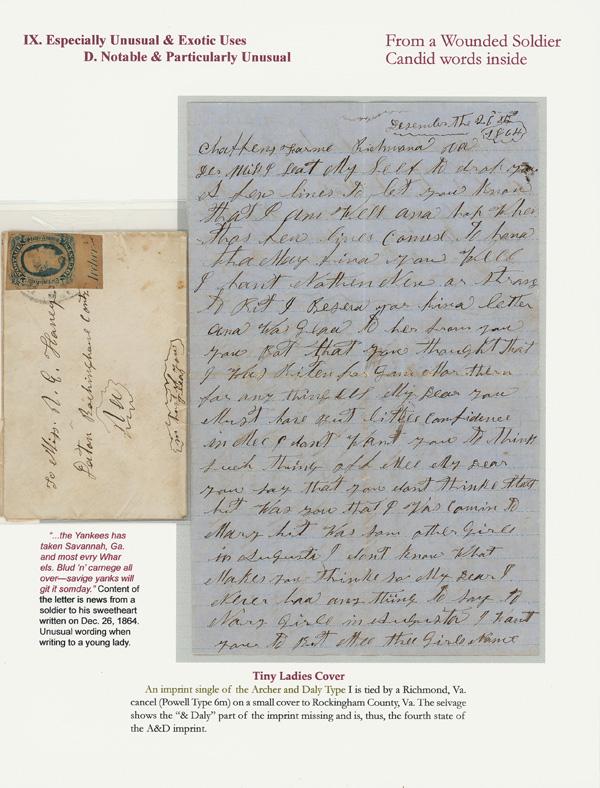 IX. Especially Unusual & Exotic Uses
D. Notable & Particularly Unusual
From a Wounded Soldier
Candid words inside
Desember the 26th
1864
Chaffens Farme Richmond va
Der Miss I Seat My Self to drop you
A few lines to let you know
that I am Well and hop When
thas few lines Comes To hand
tha May find you Well
I hant Nothen New ar Strang
To Rit I Reseva your kind letter
and Was Glad to her from you
you Rot that you thought that
I Was Riten for Gam Nor them
for any thing els My Dear you
Must have but little Confidence
in Mee I dont Want you to think
Such thing off Mee My Dear
you say that you dont thinke that
hit Was you that I Was Comin to
Mary hit Was Som other Girle
in Augusta I dont know What
Makes you thinke so My Dear I
Never had any thing to say to
Nary Girle in Augusta I Want
you to Rit Mee thee Girls Name
To Miss
Rockingham Cont
Va
"...the Yankees has
taken Savannah, Ga.
and most evry Whar
els. Blud 'n' carnege all
over—savige yanks will
git it somday." Content of
the letter is news from a
soldier to his sweetheart
written on Dec. 26, 1864.
Unusual wording when
writing to a young lady.
Tiny Ladies Cover
An imprint single of the Archer and Daly Type I is tied by a Richmond, Va.
cancel (Powell Type 6m) on a small cover to Rockingham County, Va. The selvage
shows the "& Daly" part of the imprint missing and is, thus, the fourth state of
the A&D imprint.